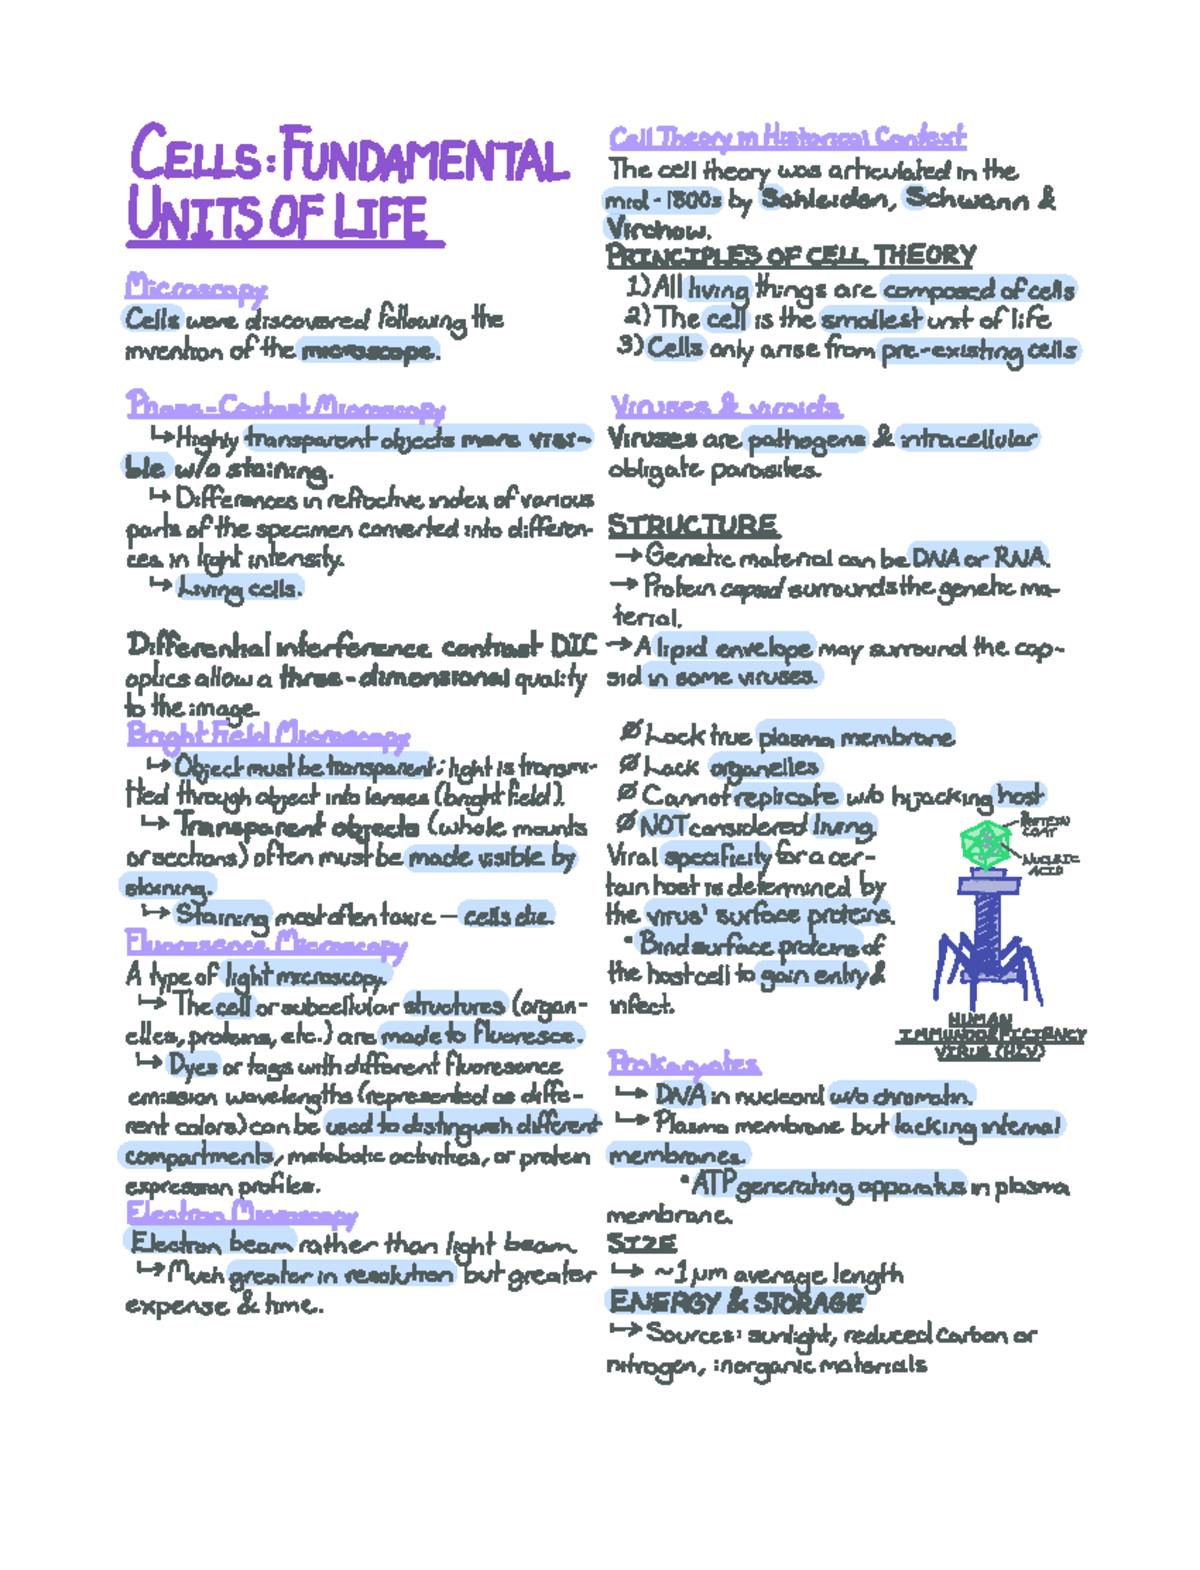 CELLS: FUNDAMENTAL
UNITS OF LIFE
Microscopy
Cells were discovered following the
invention of the microscope.
Phase-Contast Microscopy
↳ Highly transparent objects more visi-
ble w/o staining.
↳ Differences in reffactive index of various
parts of the specimen converted into differen-
ces in light intensity.
↳ Living cells.
Differential interference contrast DIC
optics allow a three-dimensional quality
to the image.
Bright Field Microscopy
↳ Object must be transparent; light is transmi-
tted through object into lenses (bright field).
↳ Transparent objects (whole mounts
or sections) often must be made visible by
staining.
↳ Staining most often toxic – cells die.
Fluoresence Microscopy
A type of light microscopy.
↳ The cell or subcellular structures (organ-
elles, proteins, etc.) are made to fluoresce.
↳ Dyes or tags with different fluoresence
emission wavelengths (represented as diffe-
rent colors) can be used to distinguish different
compartments, metabolic activities, or protein
expression profiles.
Electron Microscopy
Electron beam rather than light beam.
↳ Much greater in resolution but greater
expense & time.
Cell Theory in Historical Context
The cell theory was articulated in the
mid-1800s by Schleiden, Schwann &
Virchow.
PRINCIPLES OF CELL THEORY
1) All living things are composed of cells
2) The cell is the smallest unit of life
3) Cells only arise from pre-existing cells
Viruses & viroids
Viruses are pathogens & intracellular
obligate parasites.
STRUCTURE
→ Genetic material can be DNA or RNA.
→ Protein capsid surrounds the genetic ma-
terial.
→ A lipid envelope may surround the cap-
sid in some viruses.
Ø Lack true plasma membrane
Ø Lack organelles
Ø Cannot replicate w/o hijacking host
Ø NOT considered living.
Viral specificity for a cer-
tain host is determined by
the virus' surface proteins.
• Bind surface proteins of
the host cell to gain entry &
infect.
PROTEIN
COAT
NUCLEIC
ACID
HUMAN
IMMUNODEFICIENCY
VIRUS (HIV)
Prokaryotes
↳ DNA in nucleoid w/o chromatin.
↳ Plasma membrane but lacking internal
membranes.
• ATP generating apparatus in plasma
membrane.
SIZE
↳ ~1 μm average length
ENERGY & STORAGE
↳ Sources: sunlight, reduced carbon or
nitrogen, inorganic materials